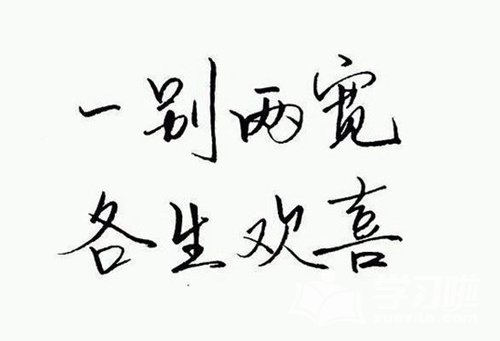 一别两宽
各生欢喜
学习啦